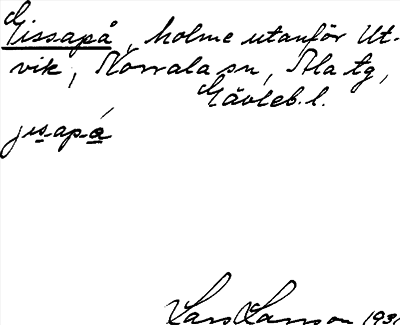 Gissapå, holme utanför Ut-
vik, Norrala sn, Ala tg,
Gävleb. l.
jisapá
Lars Larsson 193